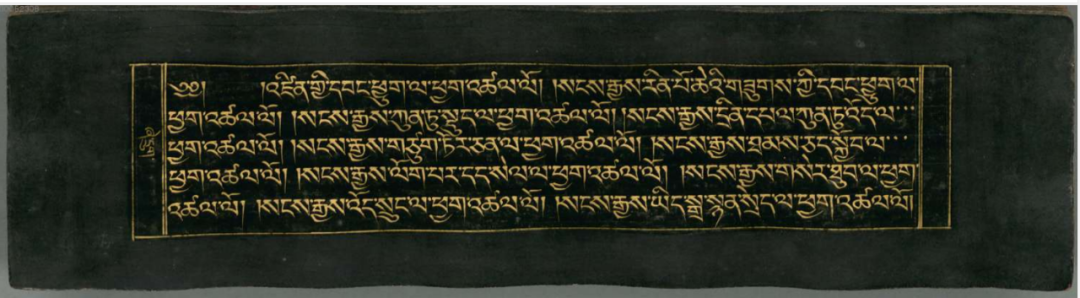 ༄༅། །འཛིན་གྱི་དབང་ཕྱུག་ལ་ཕྱག་འཚལ་ལོ། །སངས་རྒྱས་རིན་པོ་ཆེའི་གཟུགས་ཀྱི་དབང་ཕྱུག་ལ་
ཕྱག་འཚལ་ལོ། །སངས་རྒྱས་ཀུན་ཏུ་སྡུད་ལ་ཕྱག་འཚལ་ལོ། །སངས་རྒྱས་དྲི་དཔལ་ཀུན་ཏུ་འོད་ལ་
ཕྱག་འཚལ་ལོ། །སངས་རྒྱས་གཙུག་ཏོར་ཅན་ལ་ཕྱག་འཚལ་ལོ། །སངས་རྒྱས་ཐམས་ཅད་སྐྱོད་ལ་
ཕྱག་འཚལ་ལོ། །སངས་རྒྱས་ལོག་པར་དད་སེལ་ལ་ཕྱག་འཚལ་ལོ། །སངས་རྒྱས་གསེར་ཐུབ་ལ་ཕྱག་
འཚལ་ལོ། །སངས་རྒྱས་འོད་སྲུང་ལ་ཕྱག་འཚལ་ལོ། །སངས་རྒྱས་ཡིད་སྒྲ་སྙན་སྲེད་ལ་ཕྱག་འཚལ་ལོ།